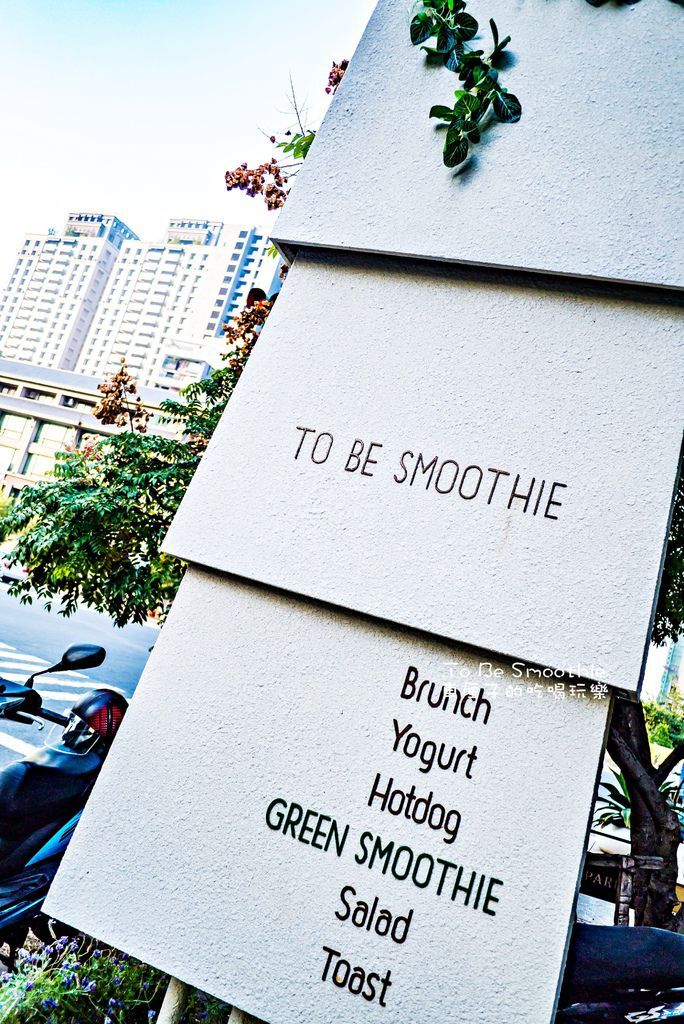 TO BE SMOOTHIE
To Be Smoothie
子的吃喝玩樂
Brunch
Yogurt
Hotdog
GREEN SMOOTHIE
Salad
Toast
PAR